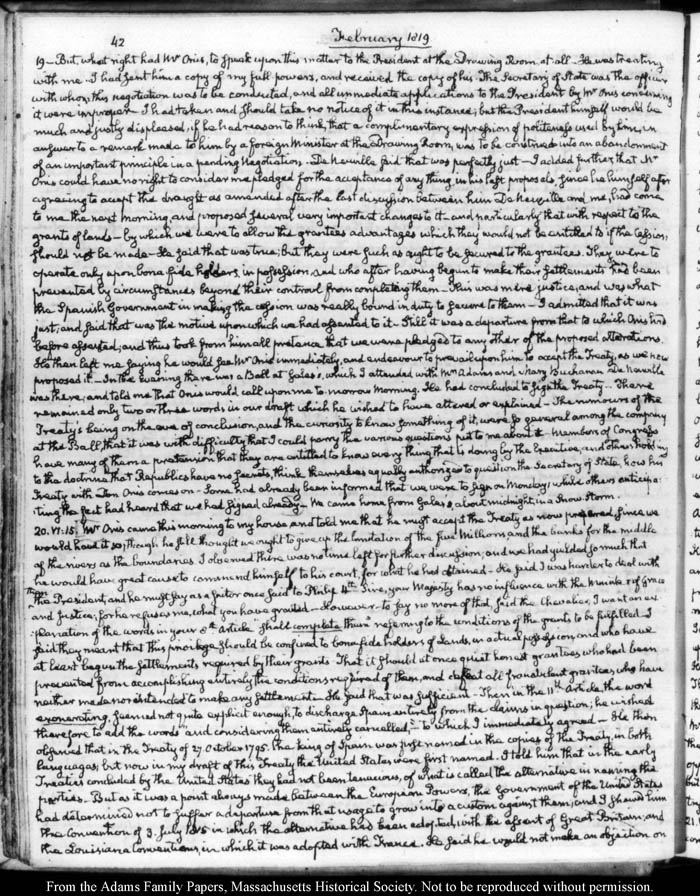 42
February 1819
19— But, what right had Mr Onis, to speak upon this matter to the President at the Drawing Room at all— He was treating
with me. I had sent him a copy of my full powers, and received the copy of his. The Secretary of State was the officer
with whom this negotiation was to be conducted, and all immediate applications to the President by Mr Onis concerning
it were improper. I had taken and should take no notice of it in this instance; but the President himself would be
much and justly displeased, if he had reason to think, that a complimentary expression of politeness used by him, in
answer to a remark made to him by a foreign Minister at the Drawing Room, was to be construed into an abandonment
of an important principle in a pending Negotiation. De Neuville said that was perfectly just— I added further that Mr
Onis could have no right to consider me pledged for the acceptance of any thing in his last proposals, since he himself after
agreeing to accept the draught as amended after the last discussion between him De Neuville and me, had come
to me the next morning, and proposed several very important changes to it— and particularly that with respect to the
grants of lands— by which we were to allow the grantees advantages which they would not be entitled to if the Cession,
should not be made— He said that was true; but they were such as ought to be secured to the grantees. They were to
operate only upon bona fide holders, in possession, and who after having begun to make their settlements had been
prevented by circumstances beyond their controul from completing them— This was mere justice; and was what
the Spanish Government in making the cession was really bound in duty to secure to them— I admitted that it was
just; and said that was the motive upon which we had assented to it— Still it was a departure from that to which Onis had
before assented; and thus took from him all pretence that we were pledged to any other of the proposed alterations.
He then left me saying he would see Mr Onis immediately, and endeavour to prevail upon him to accept the Treaty, as we now
proposed it.— In the Evening there was a Ball at Gales's, which I attended with Mrs Adams and Mary Buchanan. De Neuville
was there; and told me that Onis would call upon me to-morrow Morning. He had concluded to sign the Treaty.. There
remained only two or three words in our draft which he wished to have altered or explained— The rumours of the
Treaty's being on the eve of conclusion, and the curiosity to know something of it, were so general among the company
at the Ball, that it was with difficulty that I could parry the various questions put to me about it. Members of Congress
have many of them a pretension that they are entitled to know every thing that is doing by the Executive, and others holding
to the doctrine that Republics have no secrets, think themselves equally authorized to question the Secretary of State, how his
Treaty with Don Onis comes on— Some had already been informed that we were to sign on Monday; while others anticipa-
ting the fact had heard that we had signed already.— We came home from Gales's, about midnight, in a Snow Storm.
20. VI:15. Mr Onis came this morning to my house, and told me that he must accept the Treaty as now prepared, since we
would have it so; though he still thought we ought to give up the limitation of the five Millions, and the banks for the middle
of the rivers as the boundaries. I observed there was no time left for further discussion; and we had yielded so much that
he would have great cause to commend himself to his court, for what he had obtained— He said I was harder to deal with
than the President, and he must say as a suitor once said to Philip 4th "Sire, your Majesty has no influence with the Minister of Grace
and Justice; for he refuses me, what you have granted— However— to say no more of that, said the Chevalier, I want an ex-
planation of the words in your 8th Article "shall complete them" referring to the conditions of the grants to be fulfilled— I
said they meant that this privilege should be confined to bona fide holders of Lands, in actual possession, and who have
at least begun the settlements required by their grants— That it should at once quiet honest grantees, who had been
prevented from accomplishing entirely the conditions required of them, and defeat all fraudulent grantees, who have
neither made nor intended to make any settlement.— He said that was sufficient— Then in the 11th Article, the word
exonerating, seemed not quite explicit enough, to discharge Spain entirely from the claims in question; he wished
therefore to add the words "and considering them entirely cancelled,"— to which I immediately agreed— He then
observed that in the Treaty of 27. October 1795. the King of Spain was first named in the copies of the Treaty, in both
languages; but now in my draft of this Treaty the United States were first named. I told him that in the early
Treaties concluded by the United States they had not been tenacious, of what is called the alternative in naming the
parties. But as it was a point always made between the European Powers, the Government of the United States
had determined not to suffer a departure from that usage to grow into a custom against them; and I shewed him
the Convention of 3. July 1815 in which the alternative had been adopted, with the assent of Great Britain; and
the Louisiana Conventions, in which it was adopted with France. He said he would not make an objection on
From the Adams Family Papers, Massachusetts Historical Society. Not to be reproduced without permission.